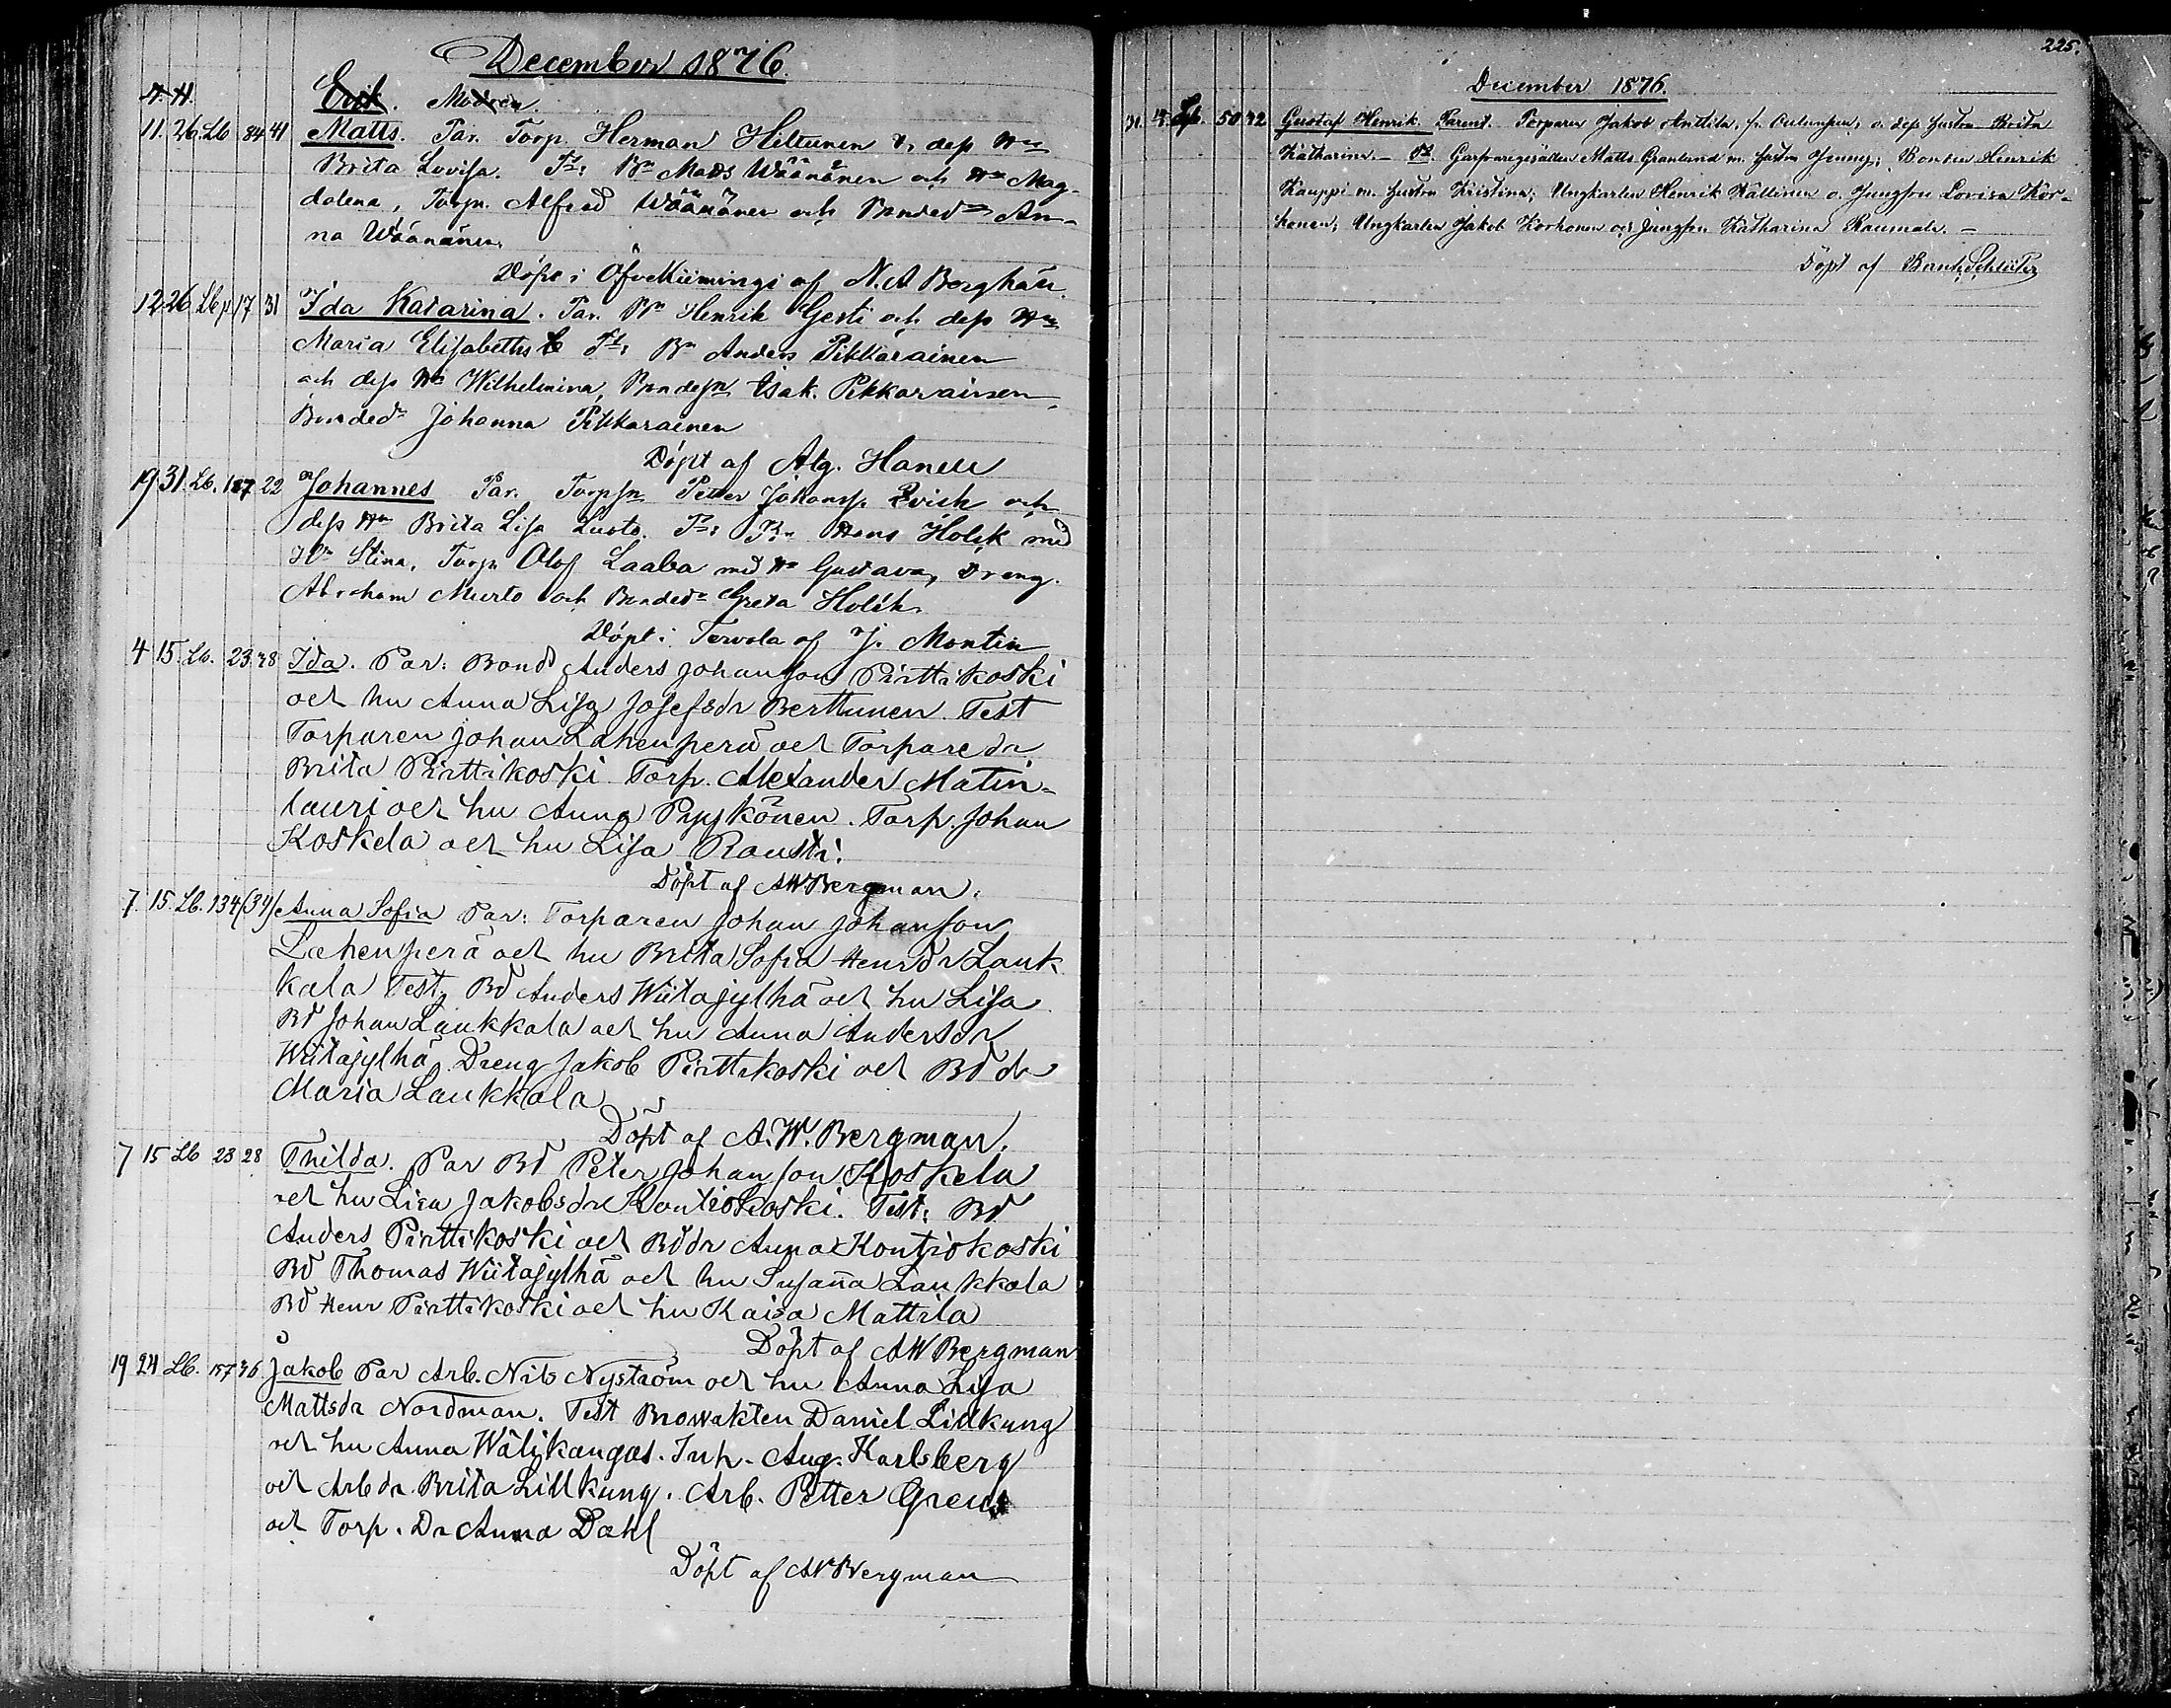 December 1876.
Erik. Modren.
11. 26. Lb 84 41 Matts. Par. Torp. Herman Hiltunen o. dess Hu
Brita Lovisa. Ts: Bn Mads Wäänänen och Hu Mag-
dalena, Torpn. Alfred Wäänänen och Bonded. An-
na Wäänänen.
Döpt i Öfvekiimingi af N. A Berghäll.
12 26 Lb 17 31 Ida Katarina. Par. Bn Henrik Gesti och dess Hu
Maria Elisabeth Ts: Bn Anders Pikkarainen
och dess Hu Wilhelmina, Bondesn Isak. Pikkarainen,
Bonded. Johanna Pikkarainen
Döpt af Alg. Hanell
19 31. Lb. 187 22 Johannes Par. Torpsn Petter Johanss. och
dess Hu Brita Lisa Lusto. Ts: Bn Hans Holck med
Hu Stina, Torpn Olof Laaba med Hu Gustava, Dreng.
Abraham Murto och Bonded. Greta Holck.
Döpt i Tervola af J. Montin
4 15. Lb. 23. 28 Ida. Par: Bond Anders Johansson Pirttikoski
och hu Anna Lisa Josefsdr Berttunen. Test
Torparen Johan Lahenperä och Torparedr
Brita Pirttikoski Torp. Alexander Matin-
lauri och hu Anna Pyykönen. Torp. Johan
Koskela och hu Lisa Rousti.
Döpt af AWBergman.
7. 15. Lb. 134 (34) Anna Sofia Par: Torparen Johan Johansson
Lahenperä och hu Brita Sofia Henrdr Lauk-
kala Test, Bd Anders Wiitajylhä och hu Lisa
Bd Johan Laukkala och hu Anna Andersdr
Wiitajylhä, Dreng Jakob Pirttikoski och Bd dr
Maria Laukkala
Döpt af A. W. Bergman.
7 15 Lb 23 28 Thilda. Par Bd Peter Johansson Koskela
och hu Lisa Jakobsdr Kontiokoski. Test: Bd
Anders Pirttikoski och Bddr Anna Kontiokoski
Bd Thomas Wiitajylhä och hu Susanna Laukkala
Bd Henr Pirttikoski och hu Kaisa Mattila
Döpt af AWBergman
19 24 Lb. 157 36. Jakob Par Arb. Nils Nyström och hu Anna Lisa
Mattsdr Nordman. Test Browakten Daniel Lillkung
och hu Anna Wälikangas. Inh. Aug. Karlsberg
och Arbdr. Brita Lillkung. Arb. Petter
och Torp. Dr Anna Dahl
Döpt af AWBergman
225.
December 1876.
50 42 Gustaf Henrik Parent. Torparen Jakob Anttila, o. dess hustru Brita
Katharina. - Garfvaregesällen Matts Granlund m. hustru Jenny; Bonden Henrik
Kauppi m. hustru Kristina; Ungkarlen Henrik Källinen o. Jungfru Lovisa Kor-
honen; Ungkarlen Jakob Korhonen och Jungfru Katharina Raumala. -
Döpt af